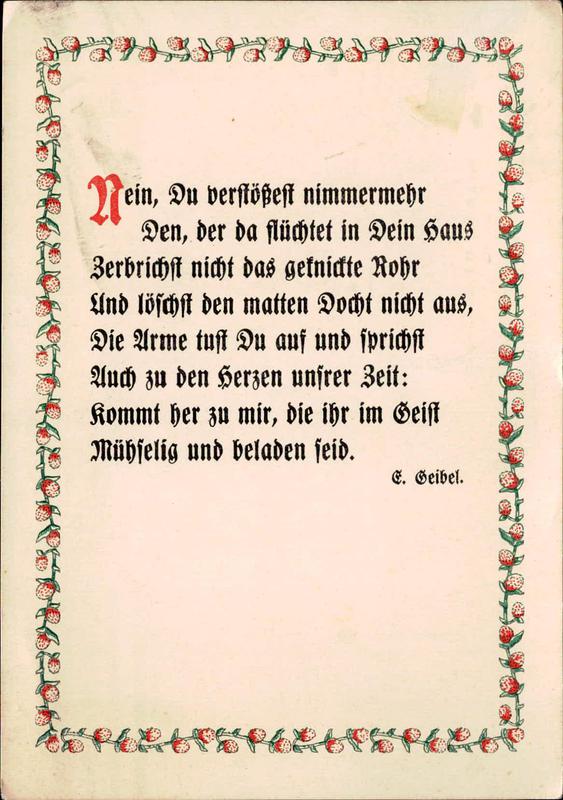 Nein, Du verstößest nimmermehr
Den, der da flüchtet in Dein Haus
Zerbrichst nicht das geknickte Rohr
Und löschst den matten Docht nicht aus,
Die Arme tust Du auf und sprichst
Auch zu den Herzen unsrer Zeit:
Kommt her zu mir, die ihr im Geist
Mühselig und beladen seid.
E. Geibel.